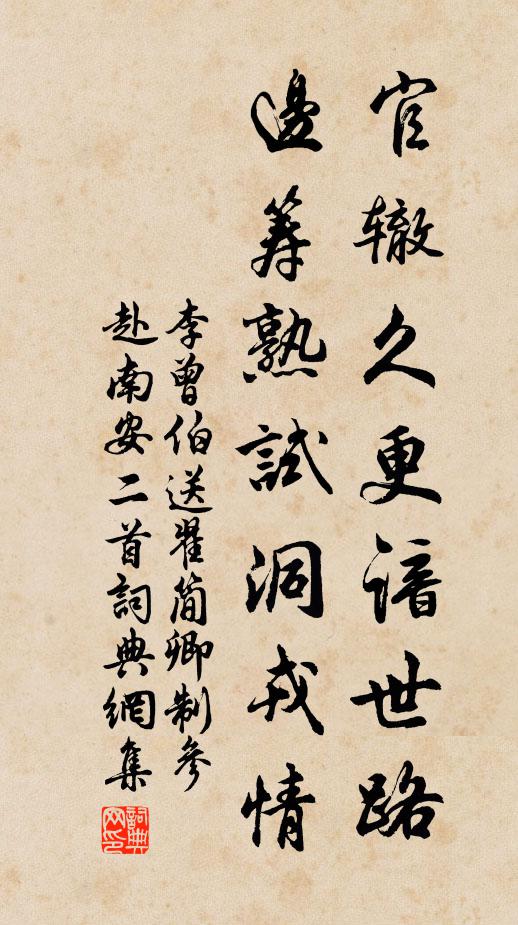 官辙久更谙世路
邊籌熟試洞戎情
李曾伯送翟簡卿制參
赴南安二首詞典網集
詞典网印